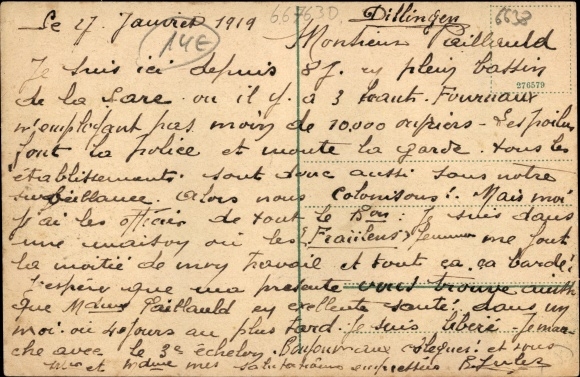 Le 27 Janvier 1919
667630
Dillingen
6638
14E
Monsieur Paillauld
276579
Je suis ici depuis 8 j. en plein bassin
de la Sare ou il y. a 3 haut. Fournaux
n'employant pas moin de 10.000 oupriers - Les poilus
font la police et monte la garde. tous les
établissements. sont donc aussi sous notre
surveillance. Alors nous colonisons!. Mais moi
j'ai les officier de tout le Bon: Je suis dans
une maison ou les "Fraülens" femmes me font
la moitié de mon travail et tout ça, ça barde!
J'espère que ma présente vous trouve
que Mdme Paillauld en exellente santé. dans un
moi ou 40 jours au plus tard. Je suis libéré. Je mar-
che avec le 3e échelon. Bonjour aux collègues! et vous
et Mdme mes salutations empressées